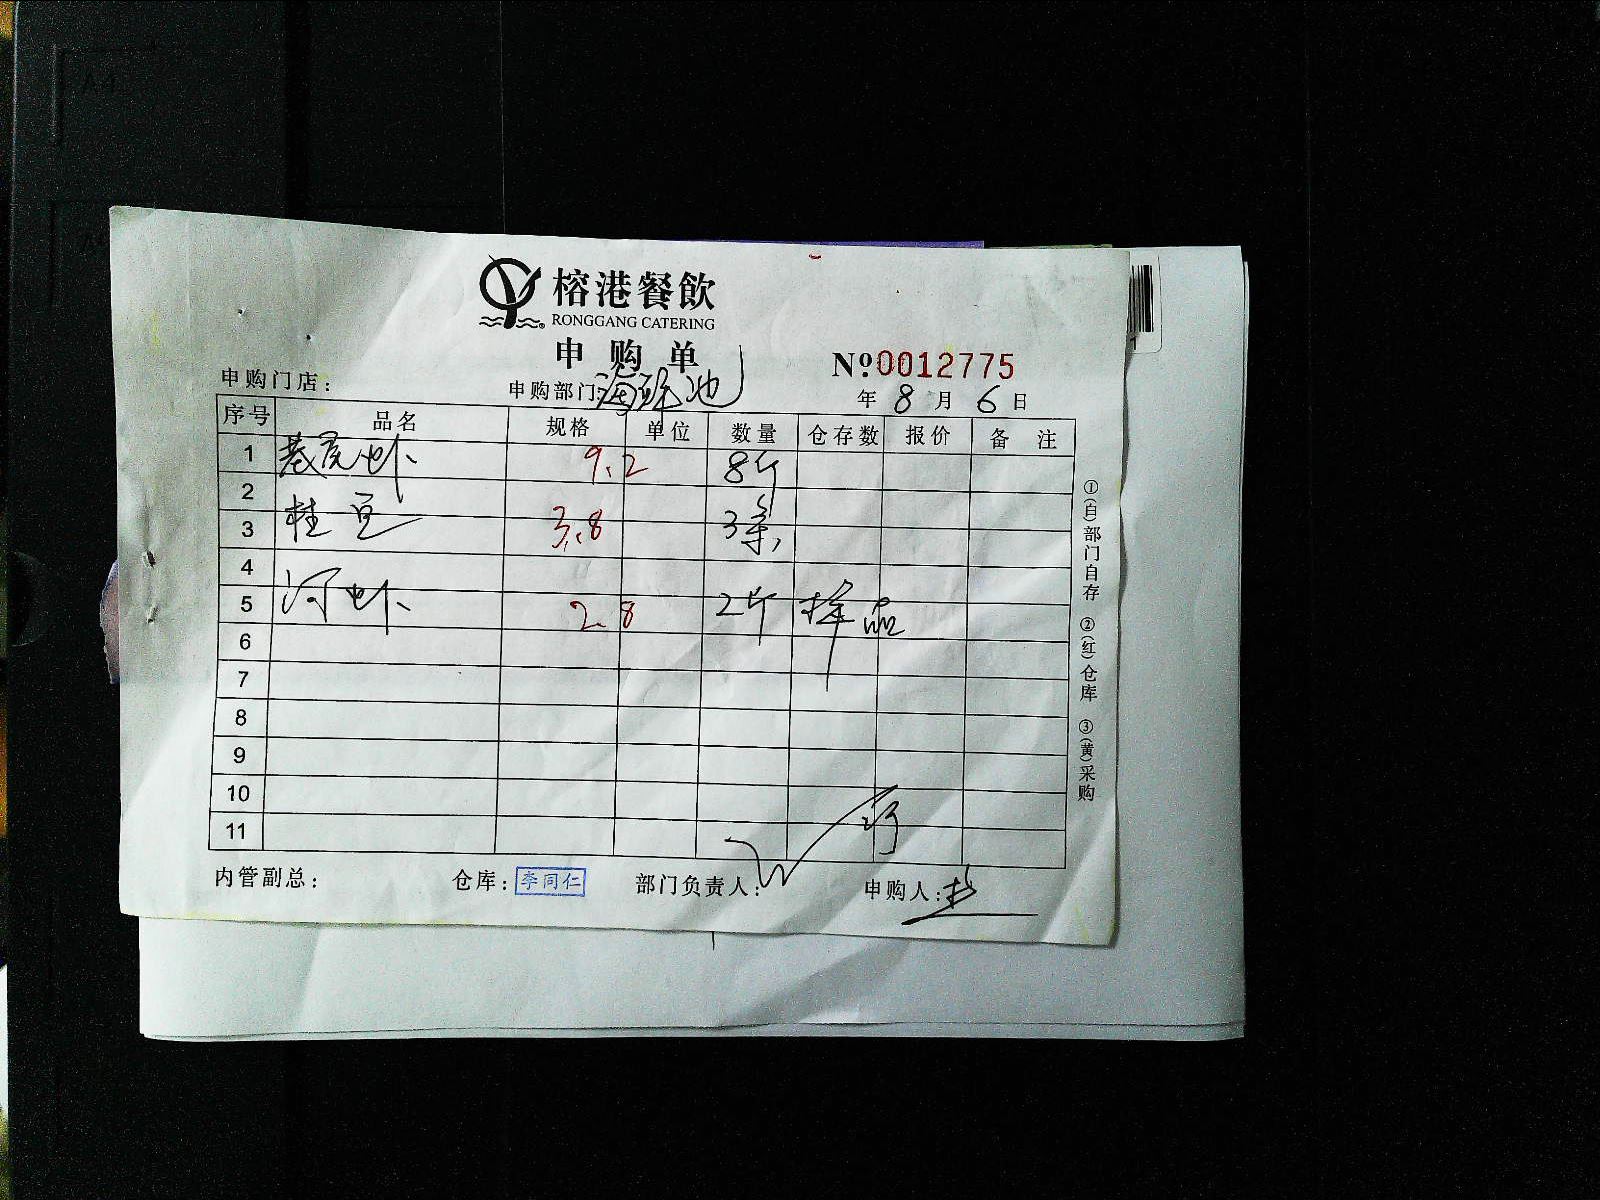 榕港餐飲
RONGGANG CATERING
申购单
№0012775
申购门店： 申购部门：海鲜池 年 8 月 6 日
序号 品名 规格 单位 数量 仓存数 报价 备 注
1 基尾虾 9.2 8斤
2
3 桂豆 3.8 3条
4
5 河虾 2.8 2斤 样品
6
7
8
9
10
11
内管副总： 仓库：李同仁 部门负责人： 申购人：
①(自)部门自存 ②(红)仓库 ③(黄)采购